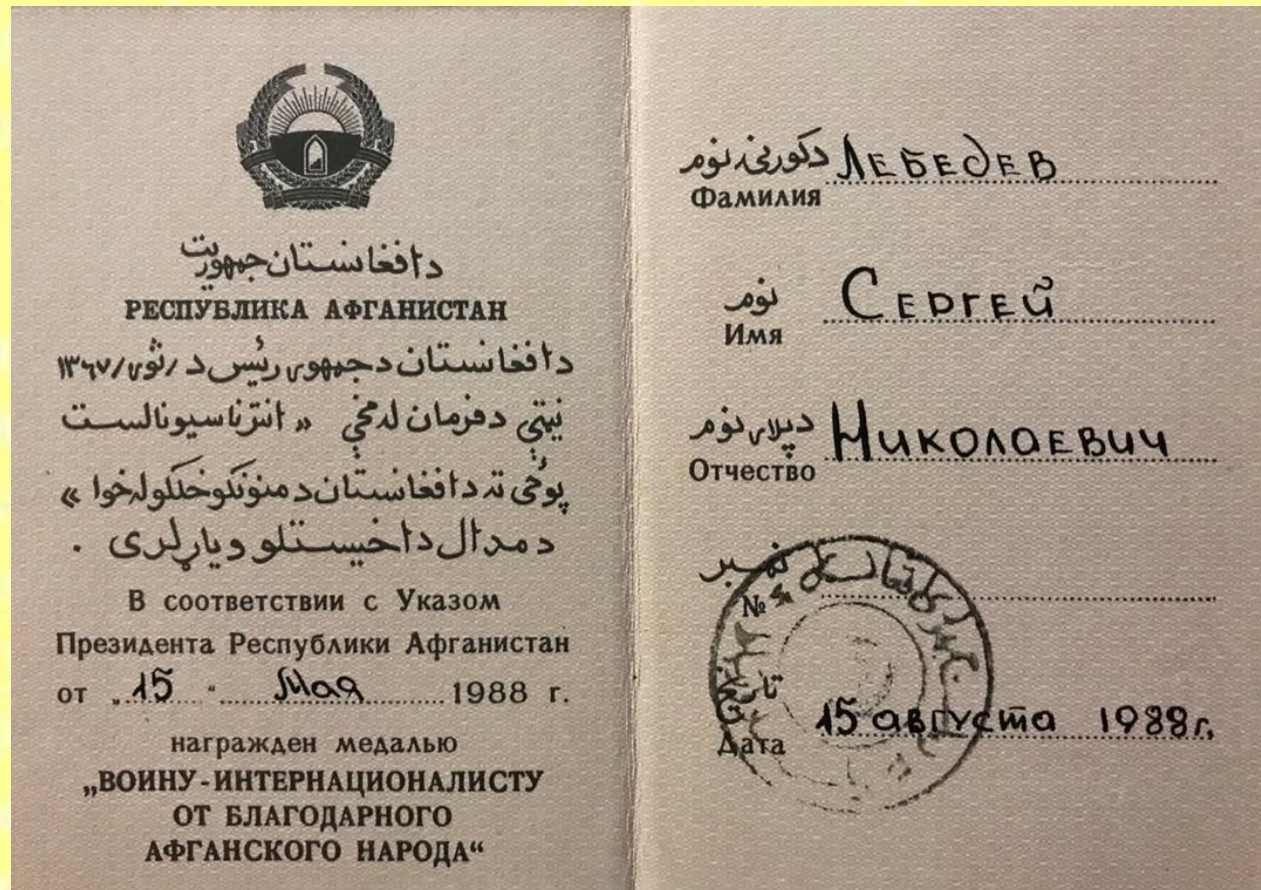 دافغانستان جمهوریت
РЕСПУБЛИКА АФГАНИСТАН
دافغانستان د جمهوری رئیس د /ثور/۱۳۶۷
نیټې د فرمان له مخې « انترناسیونالست
پوځی ته د افغانستان د منونکو خلکو له خوا »
د مدال د اخیستلو ویاړ لری .
В соответствии с Указом
Президента Республики Афганистан
от „15 " Мая 1988 г.
награжден медалью
„ВОИНУ-ИНТЕРНАЦИОНАЛИСТУ
ОТ БЛАГОДАРНОГО
АФГАНСКОГО НАРОДА“
دکورنی نوم ЛЕБЕДЕВ
Фамилия
نوم СЕРГЕЙ
Имя
دپلار نوم НИКОЛАЕВИЧ
Отчество
نمبر
№
15 августа 1988г.
Дата